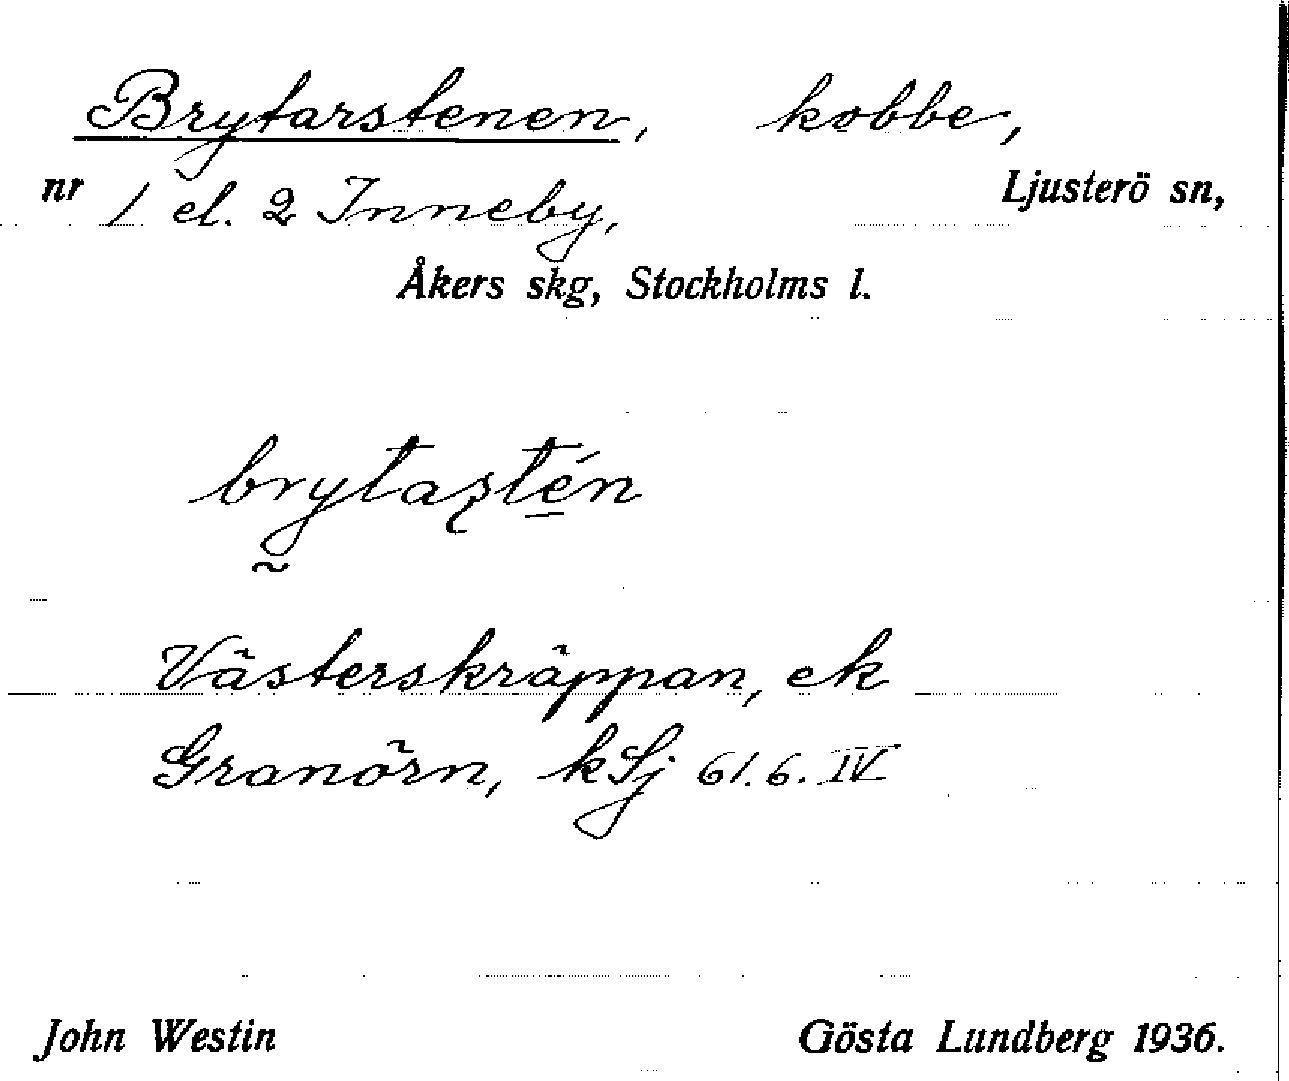 Brytarstenen, kobbe,
nr 1 el. 2 Inneby, Ljusterö sn,
Åkers skg, Stockholms l.
brytaʂtén
Västerskräppan, ek
Granörn, kSj 61.6. IV
John Westin Gösta Lundberg 1936.